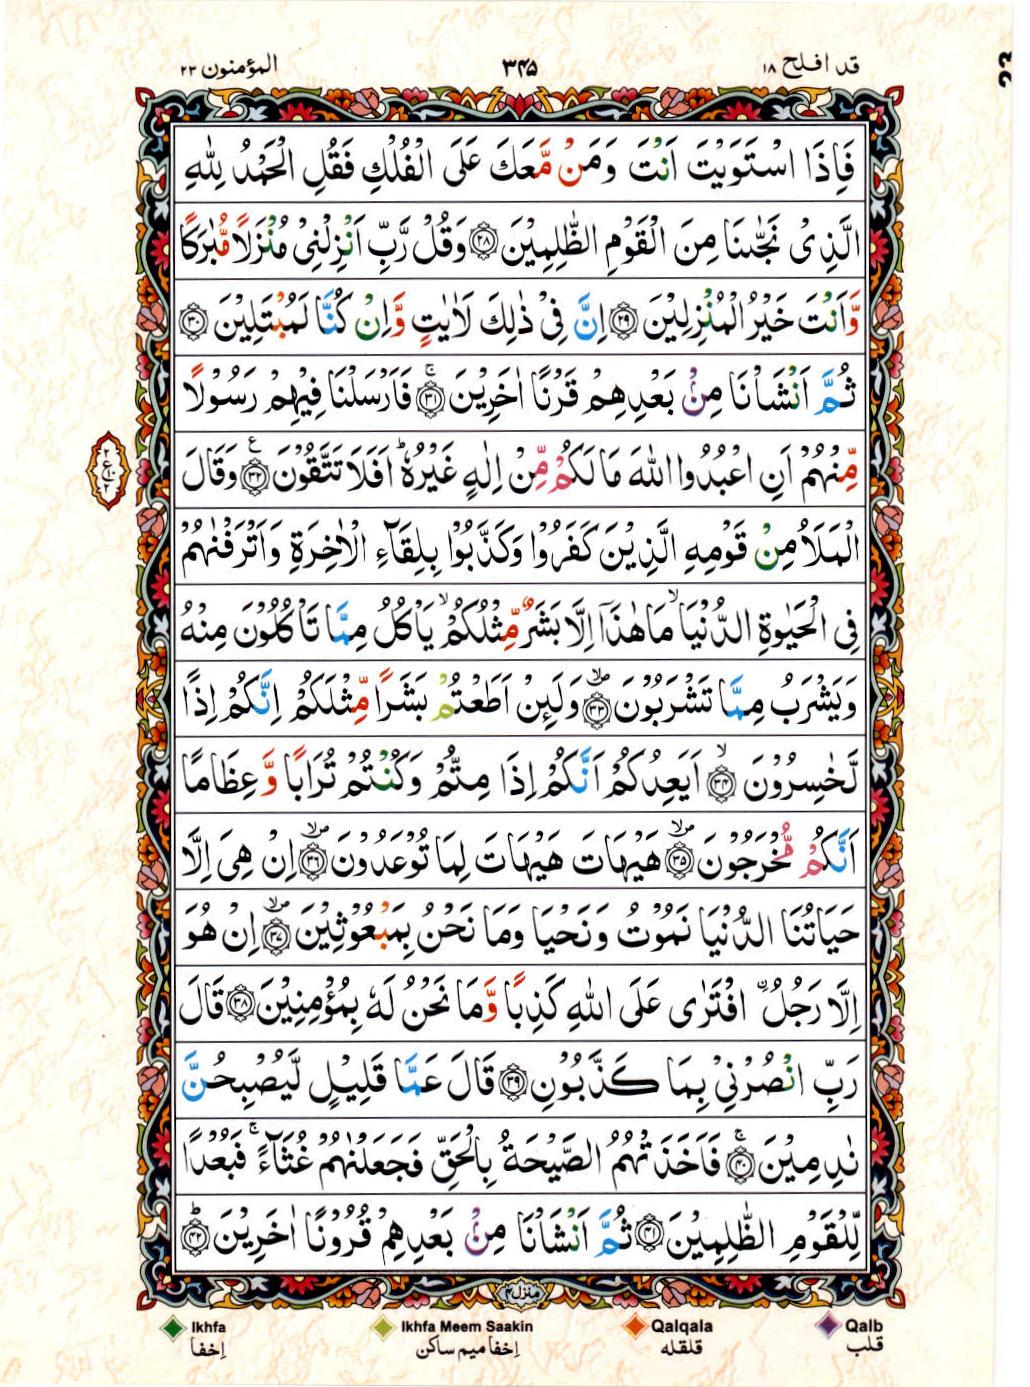 قد افلح ١٨
٣٤٥
المؤمنون ٢٣
فَاِذَا اسْتَوَيْتَ اَنْتَ وَمَنْ مَّعَكَ عَلَى الْفُلْكِ فَقُلِ الْحَمْدُ لِلّٰهِ
الَّذِىْ نَجّٰىنَا مِنَ الْقَوْمِ الظّٰلِمِيْنَ ﴿٢٨﴾ وَقُلْ رَّبِّ اَنْزِلْنِىْ مُنْزَلًا مُّبٰرَكًا
وَّاَنْتَ خَيْرُ الْمُنْزِلِيْنَ ﴿٢٩﴾ اِنَّ فِىْ ذٰلِكَ لَاٰيٰتٍ وَّاِنْ كُنَّا لَمُبْتَلِيْنَ ﴿٣٠﴾
ثُمَّ اَنْشَاْنَا مِنْۢ بَعْدِهِمْ قَرْنًا اٰخَرِيْنَ ﴿٣١﴾ۚ فَاَرْسَلْنَا فِيْهِمْ رَسُوْلًا
مِّنْهُمْ اَنِ اعْبُدُوا اللّٰهَ مَا لَكُمْ مِّنْ اِلٰهٍ غَيْرُهٗ ؕ اَفَلَا تَتَّقُوْنَ ﴿٣٢﴾ وَقَالَ
الْمَلَاُ مِنْ قَوْمِهِ الَّذِيْنَ كَفَرُوْا وَكَذَّبُوْا بِلِقَآءِ الْاٰخِرَةِ وَاَتْرَفْنٰهُمْ
فِى الْحَيٰوةِ الدُّنْيَا ۙ مَا هٰذَاۤ اِلَّا بَشَرٌ مِّثْلُكُمْ ۙ يَاْكُلُ مِمَّا تَاْكُلُوْنَ مِنْهُ
وَيَشْرَبُ مِمَّا تَشْرَبُوْنَ ﴿٣٣﴾ وَلَئِنْ اَطَعْتُمْ بَشَرًا مِّثْلَكُمْ اِنَّكُمْ اِذًا
لَّخٰسِرُوْنَ ﴿٣٤﴾ۙ اَيَعِدُكُمْ اَنَّكُمْ اِذَا مِتُّمْ وَكُنْتُمْ تُرَابًا وَّعِظَامًا
اَنَّكُمْ مُّخْرَجُوْنَ ﴿٣٥﴾ هَيْهَاتَ هَيْهَاتَ لِمَا تُوْعَدُوْنَ ﴿٣٦﴾ اِنْ هِىَ اِلَّا
حَيَاتُنَا الدُّنْيَا نَمُوْتُ وَنَحْيَا وَمَا نَحْنُ بِمَبْعُوْثِيْنَ ﴿٣٧﴾ اِنْ هُوَ
اِلَّا رَجُلُ ۨافْتَرٰى عَلَى اللّٰهِ كَذِبًا وَّمَا نَحْنُ لَهٗ بِمُؤْمِنِيْنَ ﴿٣٨﴾ قَالَ
رَبِّ انْصُرْنِىْ بِمَا كَذَّبُوْنِ ﴿٣٩﴾ قَالَ عَمَّا قَلِيْلٍ لَّيُصْبِحُنَّ
نٰدِمِيْنَ ﴿٤٠﴾ۚ فَاَخَذَتْهُمُ الصَّيْحَةُ بِالْحَقِّ فَجَعَلْنٰهُمْ غُثَآءً ۚ فَبُعْدًا
لِّلْقَوْمِ الظّٰلِمِيْنَ ﴿٤١﴾ ثُمَّ اَنْشَاْنَا مِنْۢ بَعْدِهِمْ قُرُوْنًا اٰخَرِيْنَ ﴿٤٢﴾ؕ
منزل ٤
Ikhfa
اِخفا
Ikhfa Meem Saakin
اِخفا میم ساکن
Qalqala
قلقله
Qalb
قلب